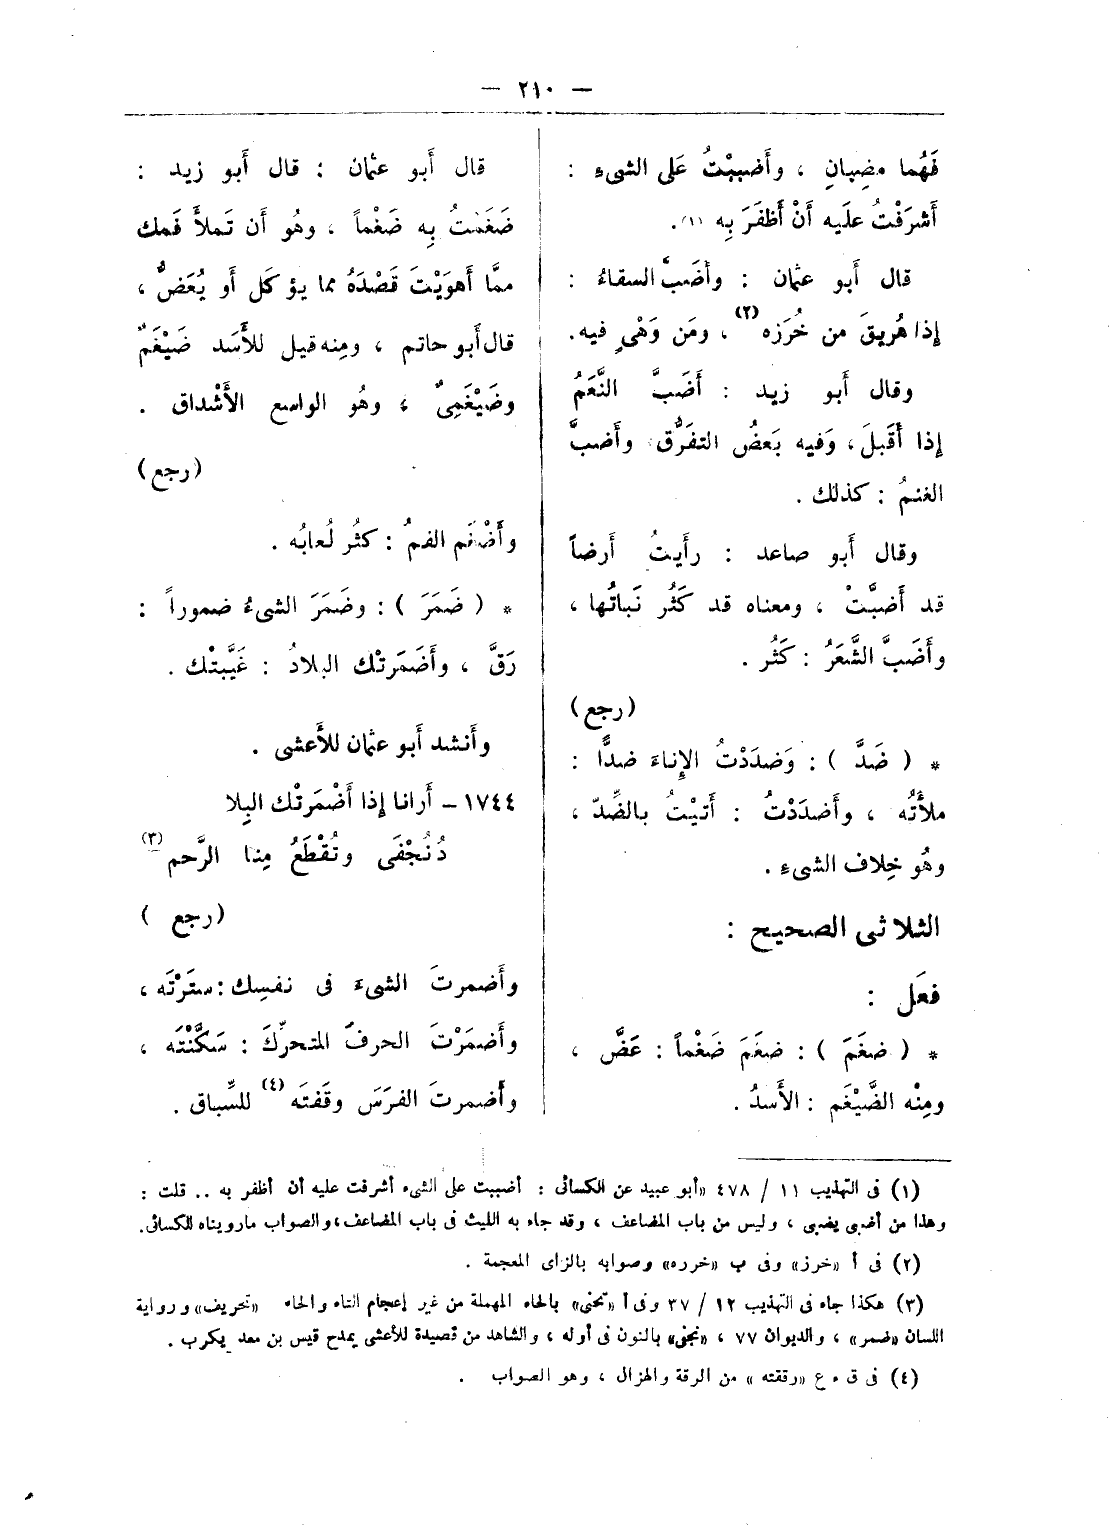 — ٢١٠ —
فَهُما مضِبانِ ، وأَضببْتُ عَلى الشىءِ :
أَشرَفْتُ علَيه أَنْ أَظفَرَ بِه (١).
قال أَبو عثمان : وأَضَبَّ السقاءُ :
إِذا هُرِيقَ من خُرَزه (٢) ، ومَن وَهْىٍ فيه.
وقال أَبو زيد : أَضَبَّ النَّعَمُ
إذا أَقبلَ ، وَفيه بَعضُ التفَرُّق وأَضبَّ
الغنمُ : كذلك .
وقال أَبو صاعد : رأَيتُ أَرضاً
قد أَضبَّتْ ، ومعناه قد كَثُر نَباتُها ،
وأَضَبَّ الشَّعَرُ : كَثُر .
(رجع)
* ( ضَدَّ ) : وَضدَدْتُ الإِناءَ ضدًّا :
ملأْتُه ، وأَضدَدْتُ : أَتيْتُ بالضِّدّ ،
وهُو خِلاف الشىءِ .
الثلاثى الصحيح :
فعَل :
* ( ضغَمَ ) : ضغَمَ ضَغْماً : عَضَّ ،
ومِنْه الضَّيْغَم : الأَسدُ .
قال أَبو عثمان : قال أَبو زيد :
ضَغَمْتُ بِه ضَغْماً ، وهُو أَن تَملأَ فَمك
ممَّا أَهوَيْتَ قَصْدَهُ مما يؤكل أَو يُعَضُّ ،
قال أَبو حاتم ، ومِنه قيل للأَسد ضَيْغَمٌ
وضَيْغَمِىٌّ ، وهُو الواسع الأَشْداق .
(رجع)
وأَضْغَم الفمُ : كثُر لُعابُه .
* ( ضَمَرَ ) : وضَمَرَ الشىءُ ضموراً :
رَقَّ ، وأَضَمَرتْك البلادُ : غَيَّبتْك .
وأَنشد أَبو عثمان للأَعشى .
١٧٤٤ – أَرانا إِذا أَضْمَرتْك البِلا
دُ نُجْفَى وتُقْطَعُ مِنا الرَّحم (٣)
(رجع )
وأَضمرتَ الشىءَ فى نفسِك : ستَرْتَه ،
وأَضمَرْتَ الحرفَ المتحرِّكَ : سَكَّنْتَه ،
وأَضمرتَ الفرَسَ وقَفتَه (٤) للسِّباق .
(١) فى التهذيب ١١ / ٤٧٨ «أبو عبيد عن الكسائى : أضببت على الشىء أشرفت عليه أن أظفر به .. قلت :
وهذا من أضبى يضبى ، وليس من باب المضاعف ، وقد جاء به الليث فى باب المضاعف ، والصواب مارويناه للكسائى.
(٢) فى أ «خرز» وفى ب «خرره» وصوابه بالزاى المعجمة .
(٣) هكذا جاء فى التهذيب ١٢ / ٣٧ وفى أ «تحنى» بالحاء المهملة من غير إعجام التاء والحاء «تحريف» ورواية
اللسان «ضمر» ، والديوان ٧٧ ، «نجفى» بالنون فى أوله ، والشاهد من قصيدة للأعشى يمدح قيس بن معد يكرب .
(٤) فى ق ، ع «رققته » من الرقة والهزال ، وهو الصواب .